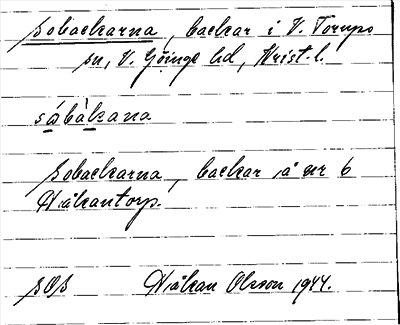 Sobackarna, backar i V. Torups
sn, V. Göinge hd, Krist. l.
sábàkana
Sobackarna, backar å nr 6
Håkantorp.
SOS Håkan Olsson 1944.